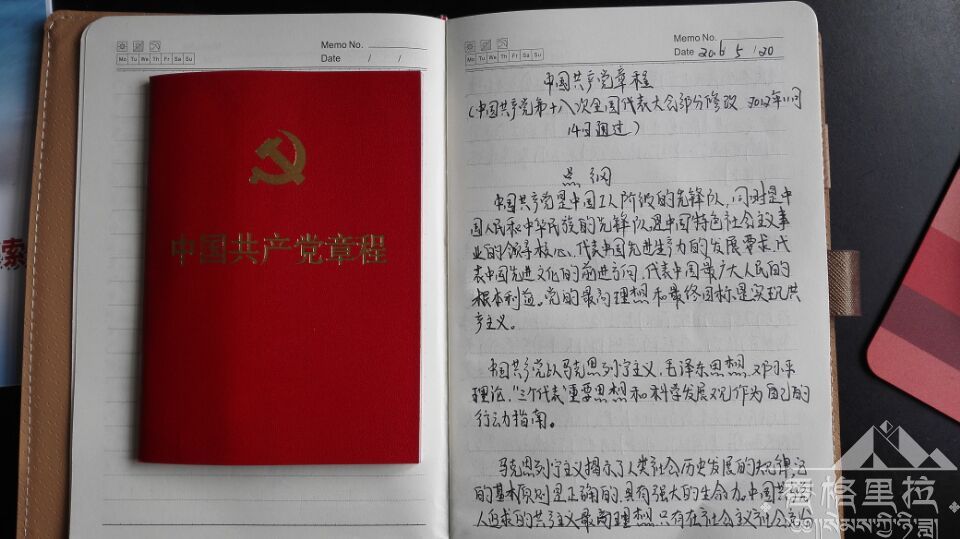 Memo No.
Mo Tu We Th Fr Sa Su
Date / /
中国共产党章程
索
Memo No.
Mo Tu We Th Fr Sa Su
Date 2016 5 / 20
中国共产党章程
(中国共产党第十八次全国代表大会部分修改 2012年11月
14日通过)
总纲
中国共产党是中国工人阶级的先锋队,同时是中
国人民和中华民族的先锋队,是中国特色社会主义事
业的领导核心,代表中国先进生产力的发展要求,代
表中国先进文化的前进方向,代表中国最广大人民的
根本利益。党的最高理想和最终目标是实现共
产主义。
中国共产党以马克思列宁主义、毛泽东思想、邓小平
理论、“三个代表”重要思想和科学发展观作为自己的
行动指南。
马克思列宁主义揭示了人类社会历史发展的规律,它
的基本原则是正确的,具有强大的生命力。中国共产
人追求的共产主义最高理想,只有在社会主义社会充分
香格里拉